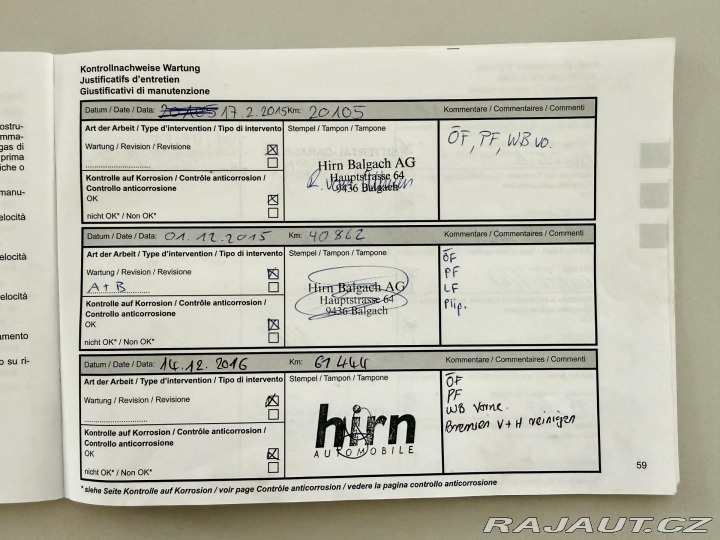 Kontrollnachweise Wartung
Justificatifs d'entretien
Giustificativi di manutenzione
Datum / Date / Data: 20105 17.2.2015 Km: 20105 Kommentare / Commentaires / Commenti
Art der Arbeit / Type d'intervention / Tipo di intervento Stempel / Tampon / Tampone
ÖF, PF, WB vo.
Wartung / Revision / Revisione
Hirn Balgach AG
Hauptstrasse 64
9436 Balgach
Kontrolle auf Korrosion / Contrôle anticorrosion /
Controllo anticorrosione
OK
nicht OK* / Non OK*
Datum / Date / Data: 01.12.2015 Km: 40862 Kommentare / Commentaires / Commenti
Art der Arbeit / Type d'intervention / Tipo di intervento Stempel / Tampon / Tampone
ÖF
PF
LF
Plip.
Wartung / Revision / Revisione
A+B
Hirn Balgach AG
Hauptstrasse 64
9436 Balgach
Kontrolle auf Korrosion / Contrôle anticorrosion /
Controllo anticorrosione
OK
nicht OK* / Non OK*
Datum / Date / Data: 14.12.2016 Km: 61444 Kommentare / Commentaires / Commenti
Art der Arbeit / Type d'intervention / Tipo di intervento Stempel / Tampon / Tampone
ÖF
PF
WB Vorne.
Bremsen V+H reinigen
Wartung / Revision / Revisione
hirn
AUTOMOBILE
Kontrolle auf Korrosion / Contrôle anticorrosion /
Controllo anticorrosione
OK
nicht OK* / Non OK*
* siehe Seite Kontrolle auf Korrosion / voir page Contrôle anticorrosion / vedere la pagina controllo anticorrosione
59
RAJAUT.CZ